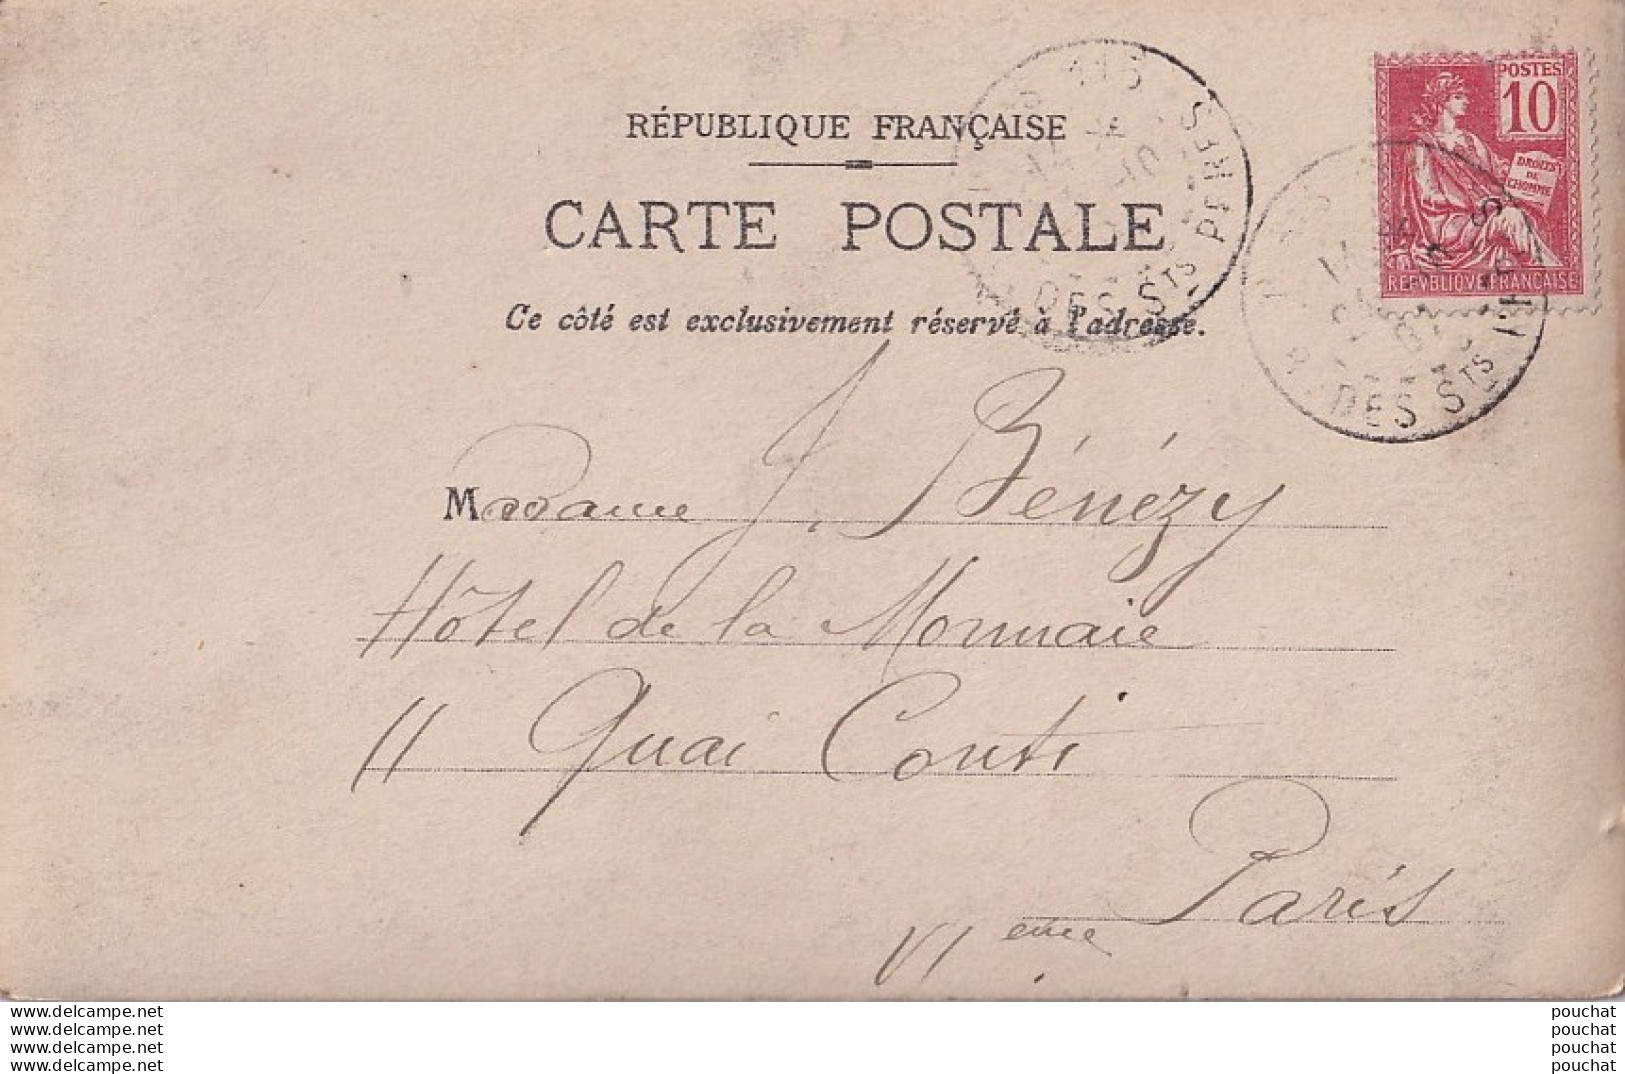 RÉPUBLIQUE FRANÇAISE
CARTE POSTALE
Ce côté est exclusivement réservé à l'adresse.
POSTES
10
DROITS
DE
L'HOMME
REPUBLIQUE FRANÇAISE
DES Sts PÈRES
DES Sts PÈRES
Madame J. Bénézy
Hôtel de la Monnaie
11 Quai Conti
Paris
VIeme
www.delcampe.net
www.delcampe.net
www.delcampe.net
www.delcampe.net
pouchat
pouchat
pouchat
pouchat